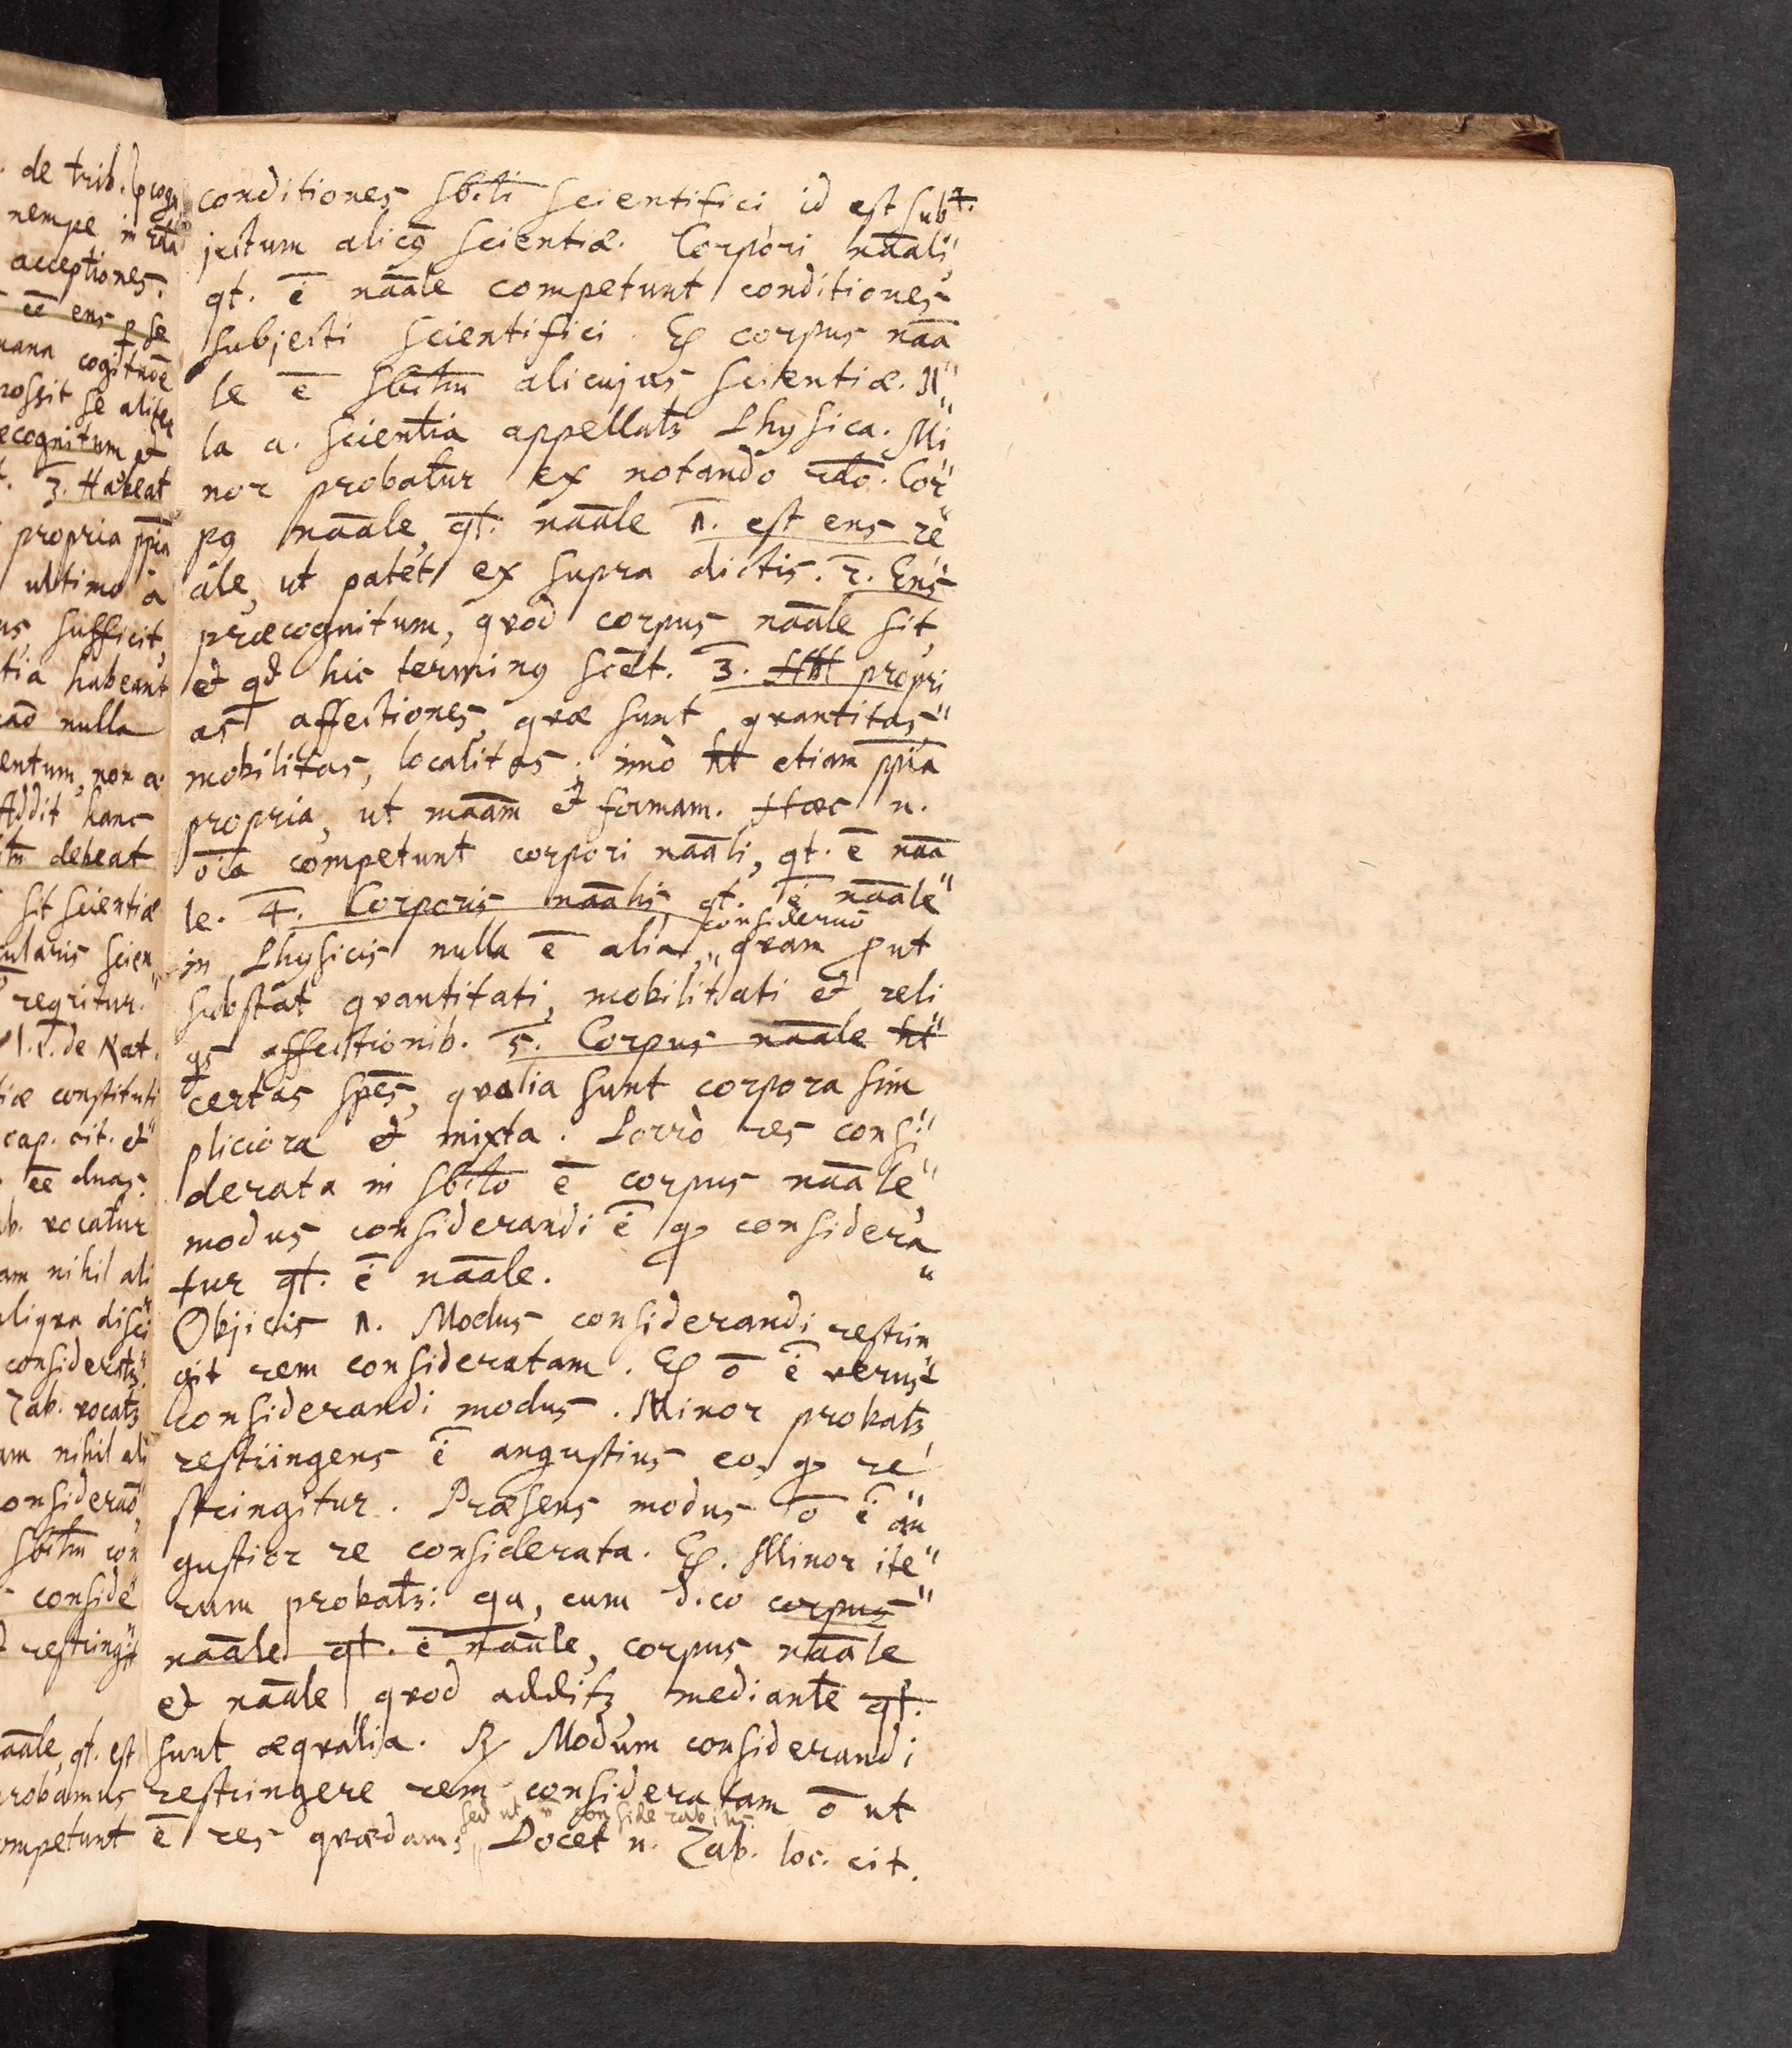 de trib. ꝑcogn
nempe in
acceptiones.
ee ens p se
mana cogitnoe
possit se aliter
ecognitum et
t. 3. Habeat
propria ppia
ultimo a
us, sufficit,
tia habeant
nulla
entum, non a.
Addit hanc
debeat
sit scientiæ
cularis scien
reqritur.
de Nat.
tiæ constituti
cap. cit. et
ee duas.
vocatur
am nihil ali
aliqva disci
consideratꝫ.
Zab. vocatꝫ
am nihil ali
consideraõ,
sbctm con
conside
restringit
nāāle, qt. est
probamus
ompetunt
conditiones sbcti scientifici, id est sub
jectum alicꝰ scientiæ. Corpori nāāli,
qt. ē nāāle competunt conditiones
subjecti scientifici. Eꝭ corpus nāā
le ē sbctm alicujus scientiæ. Il
la a. scientia appellatꝫ Physica. Mi
nor probatur ex notando 2dō. Cor
pꝰ nāāle, qt. nāāle 1. est ens re
ale, ut patet ex supra dictis. 2. Ens
præcognitum, qvod corpus nāāle sit,
et qd hic terminꝰ sc̄et. 3. Hbt propri
as affectiones, qvæ sunt qvantitas,
mobilitas, localitas; imò ht etiam ppia
propria, ut māām et formam. Hæc n.
oīa competunt corpori nāāli, qt. ē nāā
le. 4. Corporis nāālis, qt. ē nāāle
consideraō
in Physicis nulla ē alia, qvam put
substat qvantitati, mobilitati et reli
qs affectionib. 5. Corpus nāāle ht
certas spēs, qvalia sunt corpora sim
pliciora et mixta. Porrò res consi
derata in sbcto ē corpus nāāle,
modus considerandi ē qꝫ considera
tur qt. ē nāāle.
Objicis 1. Modus considerandi restrin
git rem consideratam. Eꝭ ō ē verus
considerandi modus. Minor probatꝫ,
restringens ē angustius eo, qꝫ re
stringitur. Præsens modus ō ē an
gustior re considerata. Eꝭ. Minor ite
rum probatꝫ: qu, cum dico corpus
nāāle qt. ē nāāle, corpus nāāle
et nāāle qvod additꝫ mediante qt.
sunt æqvalia. ℞ Modum considerandi
restringere rem consideratam ō ut
sed ut considerabilis.
ē res qvædam, Docet n. Zab. loc. cit.